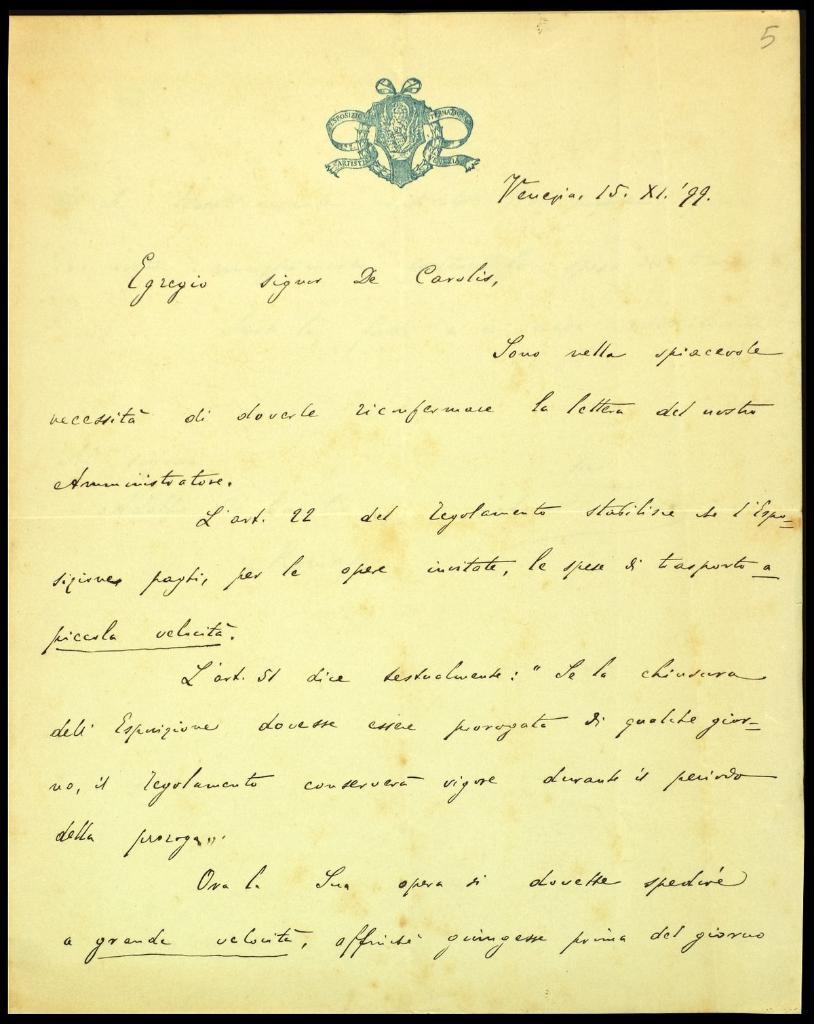 5
ESPOSIZIONE INTERNAZIONALE
ARTISTICA VENEZIA
Venezia, 15. XI. '99.
Egregio signor De Carolis,
Sono nella spiacevole
necessità di doverle riconfermare la lettera del nostro
Amministratore.
L'art. 22 del regolamento stabilisce che l'Espo=
sizione paghi, per le opere invitate, le spese di trasporto a
piccola velocità.
L'art. 51 dice testualmente: "Se la chiusura
dell'Esposizione dovesse essere prorogata di qualche gior=
no, il regolamento conserverà vigore durante il periodo
della proroga".
Ora la Sua opera si dovette spedire
a grande velocità, affinché giungesse prima del giorno